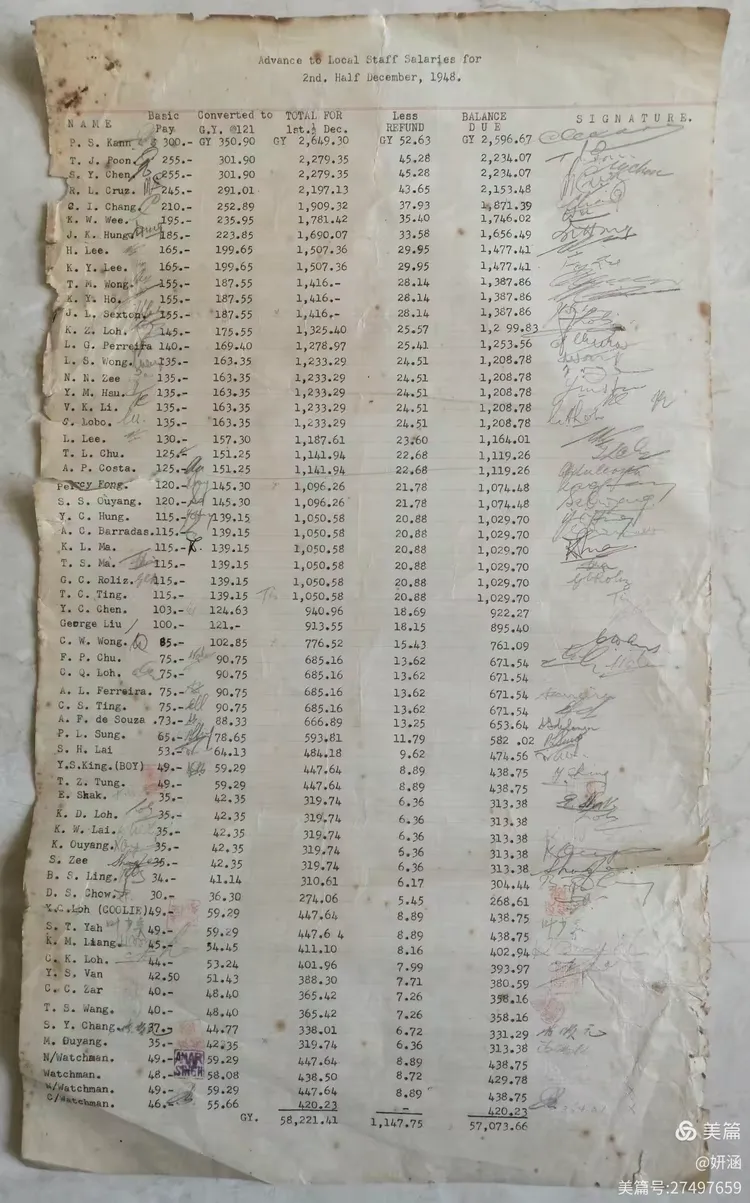 Advance to Local Staff Salaries for
2nd. Half December, 1948.
NAME Basic Pay Converted to G.Y. @121 TOTAL FOR 1st.½ Dec. Less REFUND BALANCE DUE SIGNATURE.
P. S. Kann 300.- GY 350.90 GY 2,649.30 GY 52.63 GY 2,596.67
T. J. Poon 255.- 301.90 2,279.35 45.28 2,234.07
S. Y. Chen 255.- 301.90 2,279.35 45.28 2,234.07
R. L. Cruz 245.- 291.01 2,197.13 43.65 2,153.48
C. I. Chang 210.- 252.89 1,909.32 37.93 1,871.39
K. W. Wee. 195.- 235.95 1,781.42 35.40 1,746.02
J. K. Hung 185.- 223.85 1,690.07 33.58 1,656.49
H. Lee. 165.- 199.65 1,507.36 29.95 1,477.41
K. Y. Lee. 165.- 199.65 1,507.36 29.95 1,477.41
T. M. Wong. 155.- 187.55 1,416.- 28.14 1,387.86
K. Y. Ho. 155.- 187.55 1,416.- 28.14 1,387.86
J. L. Sexton. 155.- 187.55 1,416.- 28.14 1,387.86
K. Z. Loh. 145.- 175.55 1,325.40 25.57 1,2 99.83
L. G. Perreira 140.- 169.40 1,278.97 25.41 1,253.56
L. S. Wong. 135.- 163.35 1,233.29 24.51 1,208.78
N. N. Zee 135.- 163.35 1,233.29 24.51 1,208.78
Y. M. Hsu. 135.- 163.35 1,233.29 24.51 1,208.78
V. K. Li. 135.- 163.35 1,233.29 24.51 1,208.78
S. Lobo. 135.- 163.35 1,233.29 24.51 1,208.78
L. Lee. 130.- 157.30 1,187.61 23.60 1,164.01
T. L. Chu. 125.- 151.25 1,141.94 22.68 1,119.26
A. P. Costa. 125.- 151.25 1,141.94 22.68 1,119.26
Percy Fong. 120.- 145.30 1,096.26 21.78 1,074.48
S. S. Ouyang. 120.- 145.30 1,096.26 21.78 1,074.48
Y. C. Hung. 115.- 139.15 1,050.58 20.88 1,029.70
A. C. Barradas. 115.- 139.15 1,050.58 20.88 1,029.70
K. L. Ma. 115.- 139.15 1,050.58 20.88 1,029.70
T. S. Ma. 115.- 139.15 1,050.58 20.88 1,029.70
G. C. Roliz. 115.- 139.15 1,050.58 20.88 1,029.70
T. C. Ting. 115.- 139.15 1,050.58 20.88 1,029.70
Y. C. Chen. 103.- 124.63 940.96 18.69 922.27
George Liu 100.- 121.- 913.55 18.15 895.40
C. W. Wong. 85.- 102.85 776.52 15.43 761.09
F. P. Chu. 75.- 90.75 685.16 13.62 671.54
C. Q. Loh. 75.- 90.75 685.16 13.62 671.54
A. L. Ferreira. 75.- 90.75 685.16 13.62 671.54
C. S. Ting. 75.- 90.75 685.16 13.62 671.54
A. F. de Souza .73.- 88.33 666.89 13.25 653.64
P. L. Sung. 65.- 78.65 593.81 11.79 582 .02
S. H. Lai 53.- 64.13 484.18 9.62 474.56
Y.S.King.(BOY) 49.- 59.29 447.64 8.89 438.75
T. Z. Tung. 49.- 59.29 447.64 8.89 438.75
E. Shak. 35.- 42.35 319.74 6.36 313.38
K. D. Loh. 35.- 42.35 319.74 6.36 313.38
K. W. Lai. 35.- 42.35 319.74 6.36 313.38
K. Ouyang. 35.- 42.35 319.74 6.36 313.38
S. Zee 35.- 42.35 319.74 6.36 313.38
B. S. Ling. 34.- 41.14 310.61 6.17 304.44
D. S. Chow. 30.- 36.30 274.06 5.45 268.61
Y.C.Loh (COOLIE) 49.- 59.29 447.64 8.89 438.75
S. T. Yah 49.- 59.29 447.6 4 8.89 438.75
K. M. Liang. 45.- 54.45 411.10 8.16 402.94
C. K. Loh. 44.- 53.24 401.96 7.99 393.97
Y. S. Van 42.50 51.43 388.30 7.71 380.59
C. C. Zar 40.- 48.40 365.42 7.26 358.16
T. S. Wang. 40.- 48.40 365.42 7.26 358.16
S. Y. Chang. 37.- 44.77 338.01 6.72 331.29
M. Ouyang. 35.- 42.35 319.74 6.36 313.38
N/Watchman. 49.- AMAR SINGH 59.29 447.64 8.89 438.75
Watchman. 48.- 58.08 438.50 8.72 429.78
W/Watchman. 49.- 59.29 447.64 8.89 438.75
C/Watchman. 46.- 55.66 420.23 - 420.23
GY. 58,221.41 1,147.75 57,073.66
美篇
@妍涵
美篇号:27497659